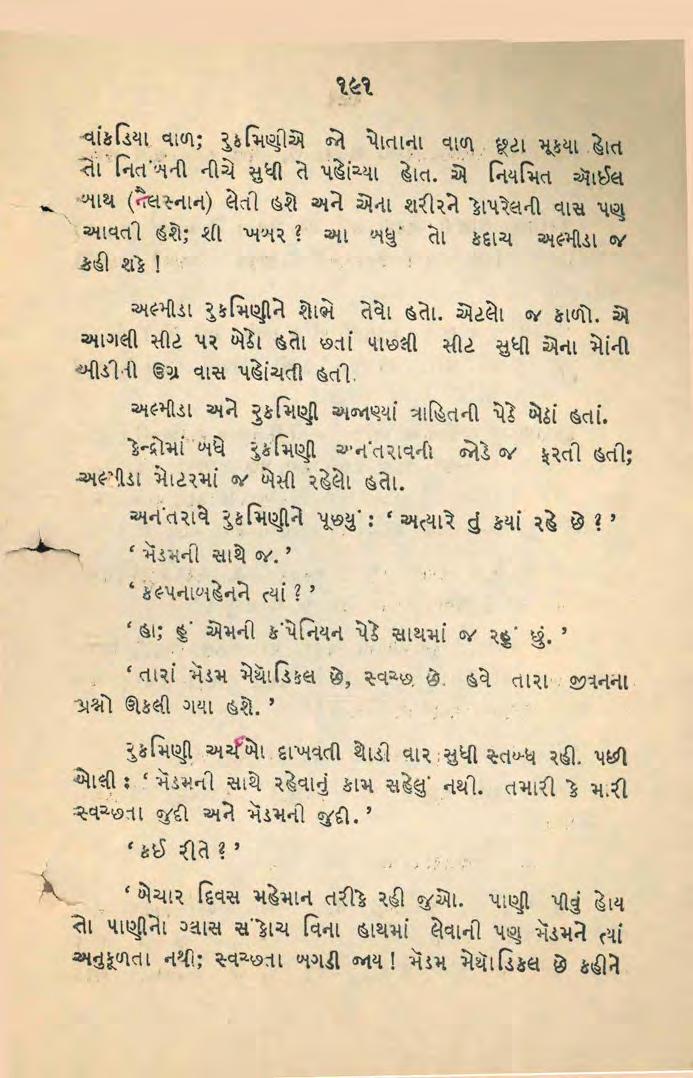 ૧૯૧
વાંકડિયા વાળ; રુકમિણીએ જો પોતાના વાળ છૂટા મૂકયા હોત
તો નિતંબની નીચે સુધી તે પહોંચ્યા હોત. એ નિયમિત ઑઈલ
બાથ (તૈલસ્નાન) લેતી હશે અને એના શરીરને કોપરેલની વાસ પણ
આવતી હશે; શી ખબર ? આ બધું તો કદાચ અલ્મીડા જ
કહી શકે !
અલ્મીડા રુકમિણીને શોભે તેવો હતો. એટલો જ કાળો. એ
આગલી સીટ પર બેઠો હતો છતાં પાછલી સીટ સુધી એના મોંની
બીડીની ઉગ્ર વાસ પહોંચતી હતી.
અલ્મીડા અને રુકમિણી અજાણ્યાં ત્રાહિતની પેઠે બેઠાં હતાં.
કેન્દ્રોમાં બધે રુકમિણી અનંતરાવની જોડે જ ફરતી હતી;
અલ્મીડા મોટરમાં જ બેસી રહેલો હતો.
અનંતરાવે રુકમિણીને પૂછયું : ‘ અત્યારે તું કયાં રહે છે ? ’
‘ મૅડમની સાથે જ. ’
‘ કલ્પનાબહેનને ત્યાં ? ’
‘ હા; હું એમની કંપેનિયન પેઠે સાથમાં જ રહું છું. ’
‘ તારાં મૅડમ મેથૉડિકલ છે, સ્વચ્છ છે. હવે તારા જીવનના
પ્રશ્નો ઊકલી ગયા હશે. ’
રુકમિણી અચંબો દાખવતી થોડી વાર સુધી સ્તબ્ધ રહી. પછી
બોલી : ‘ મૅડમની સાથે રહેવાનું કામ સહેલું નથી. તમારી કે મારી
સ્વચ્છતા જુદી અને મૅડમની જુદી. ’
‘ કઈ રીતે ? ’
‘ બેચાર દિવસ મહેમાન તરીકે રહી જુઓ. પાણી પીવું હોય
તો પાણીનો ગ્લાસ સંકોચ વિના હાથમાં લેવાની પણ મૅડમને ત્યાં
અનુકૂળતા નથી; સ્વચ્છતા બગડી જાય ! મૅડમ મેથૉડિકલ છે કહીને